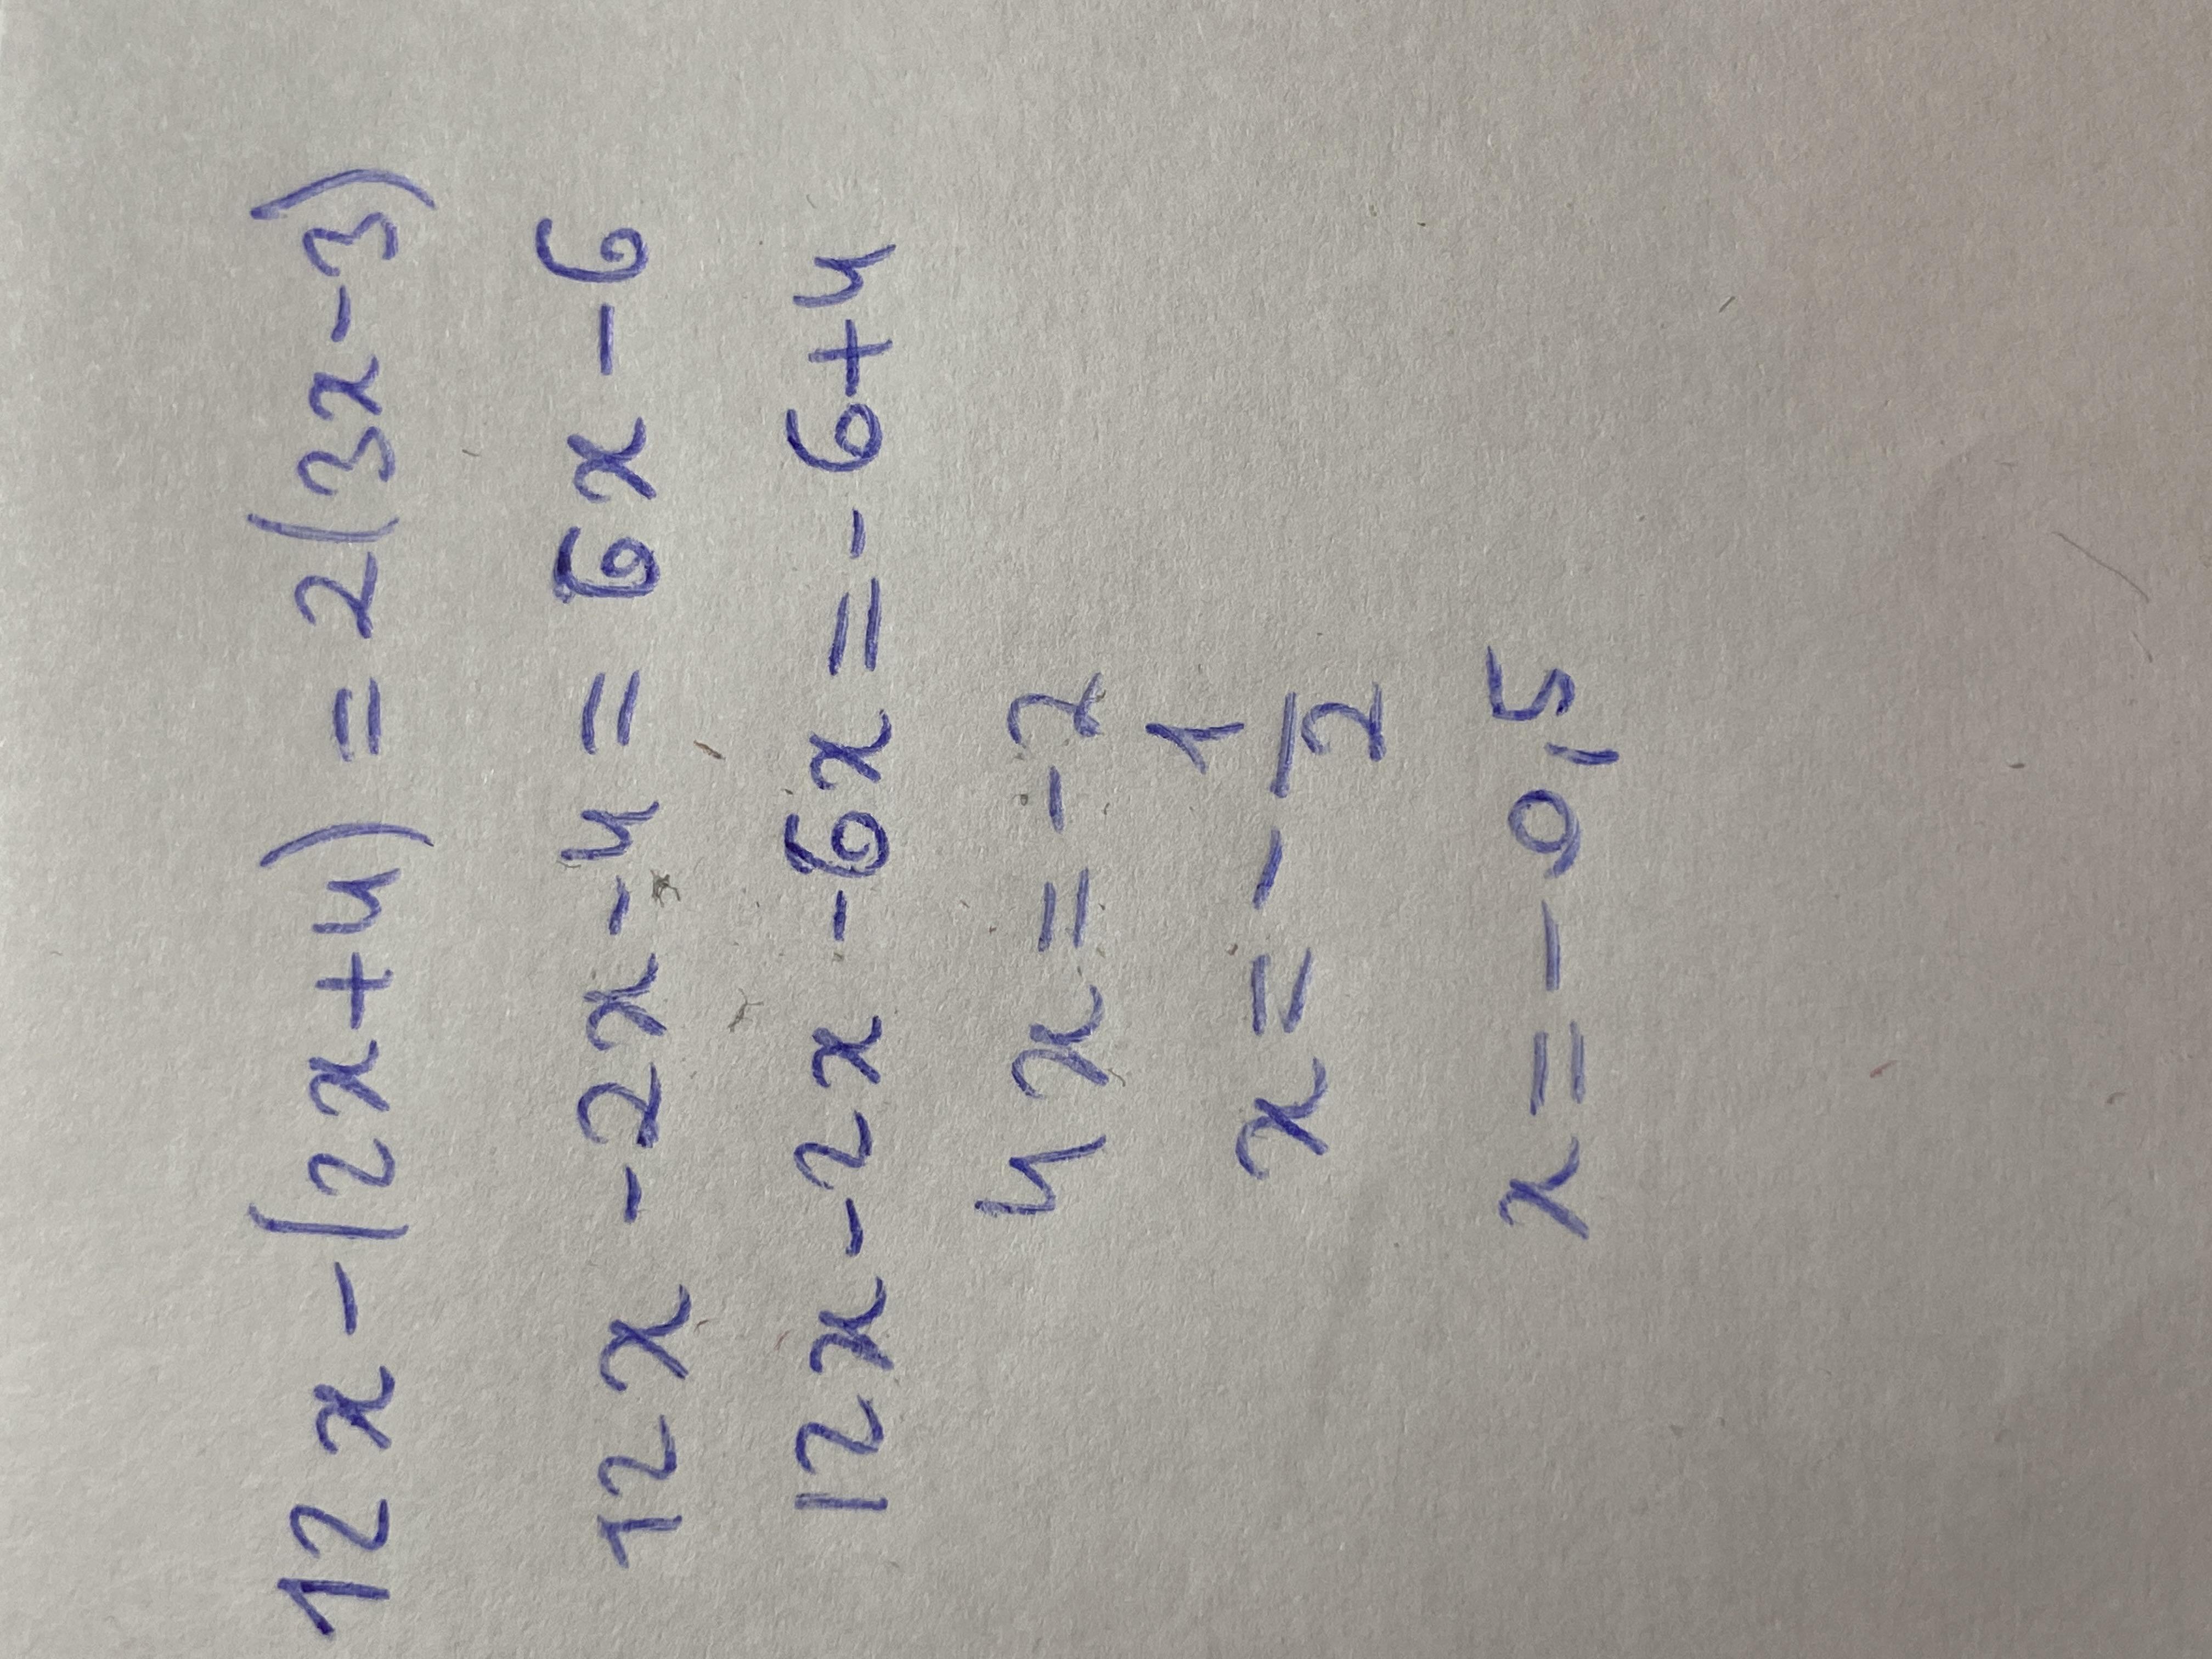 12x-(2x+4)=2(3x-3)
12x-2x-4=6x-6
12x-2x-6x=-6+4
4x=-2
x=-1/2
x=-0,5